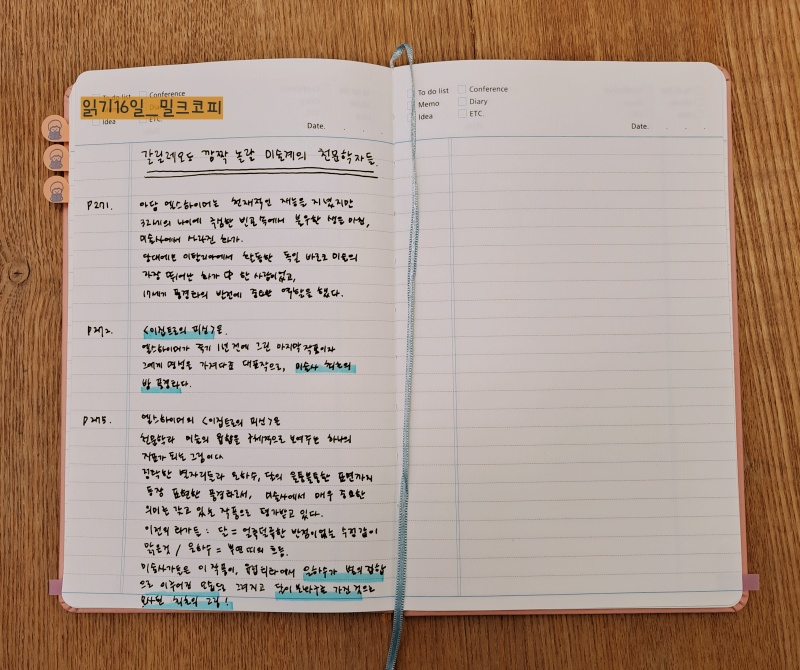 To do list Conference
Memo Diary
Idea ETC.
Date. . . .
읽기16일_밀크코피
Conference
Idea ETC
Date. . . .
갈릴레오도 깜짝 놀란 미술계의 천문학자들.
P271. 아담 엘스하이머는 천재적인 재능을 지녔지만
32세의 나이에 극심한 빈곤 속에서 불우한 생을 마침,
미술사에서 사라진 화가.
당대에도 이탈리아에서 활동한 독일 바로크 미술의
가장 뛰어난 화가 中 한 사람이었고,
17세기 풍경화의 발전에 중요한 역할을 했다.
P272. <이집트로의 피신>은.
엘스하이머가 죽기 1년 전에 그린 마지막 작품이자
그에게 명성을 가져다준 대표작으로, 미술사 최초의
밤 풍경화다.
P275. 엘스하이머의 <이집트로의 피신>은
천문학과 미술의 융합을 구체적으로 보여주는 하나의
지표가 되는 그림이다
정확한 별자리들과 은하수, 달의 울퉁불퉁한 표면까지
등장 표현한 풍경화로서, 미술사에서 매우 중요한
의미를 갖고 있는 작품으로 평가받고 있다.
이전의 화가들 : 달 = 얼룩덜룩한 반점이 없는 수정같이
맑은것 / 은하수 = 뿌연 띠의 흐름.
미술사가들은 이 작품이, 풍경화에서 은하수가 별의 집합
으로 이루어진 모습으로 그려지고 달이 분화구를 가진 것으로
묘사된 최초의 그림!